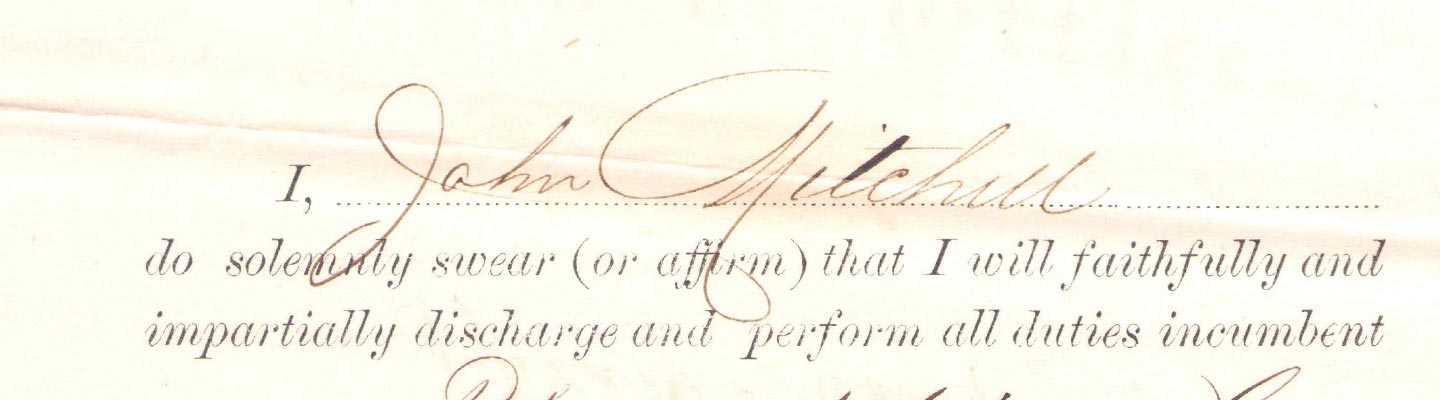 I, John Mitchell
do solemnly swear (or affirm) that I will faithfully and
impartially discharge and perform all duties incumbent